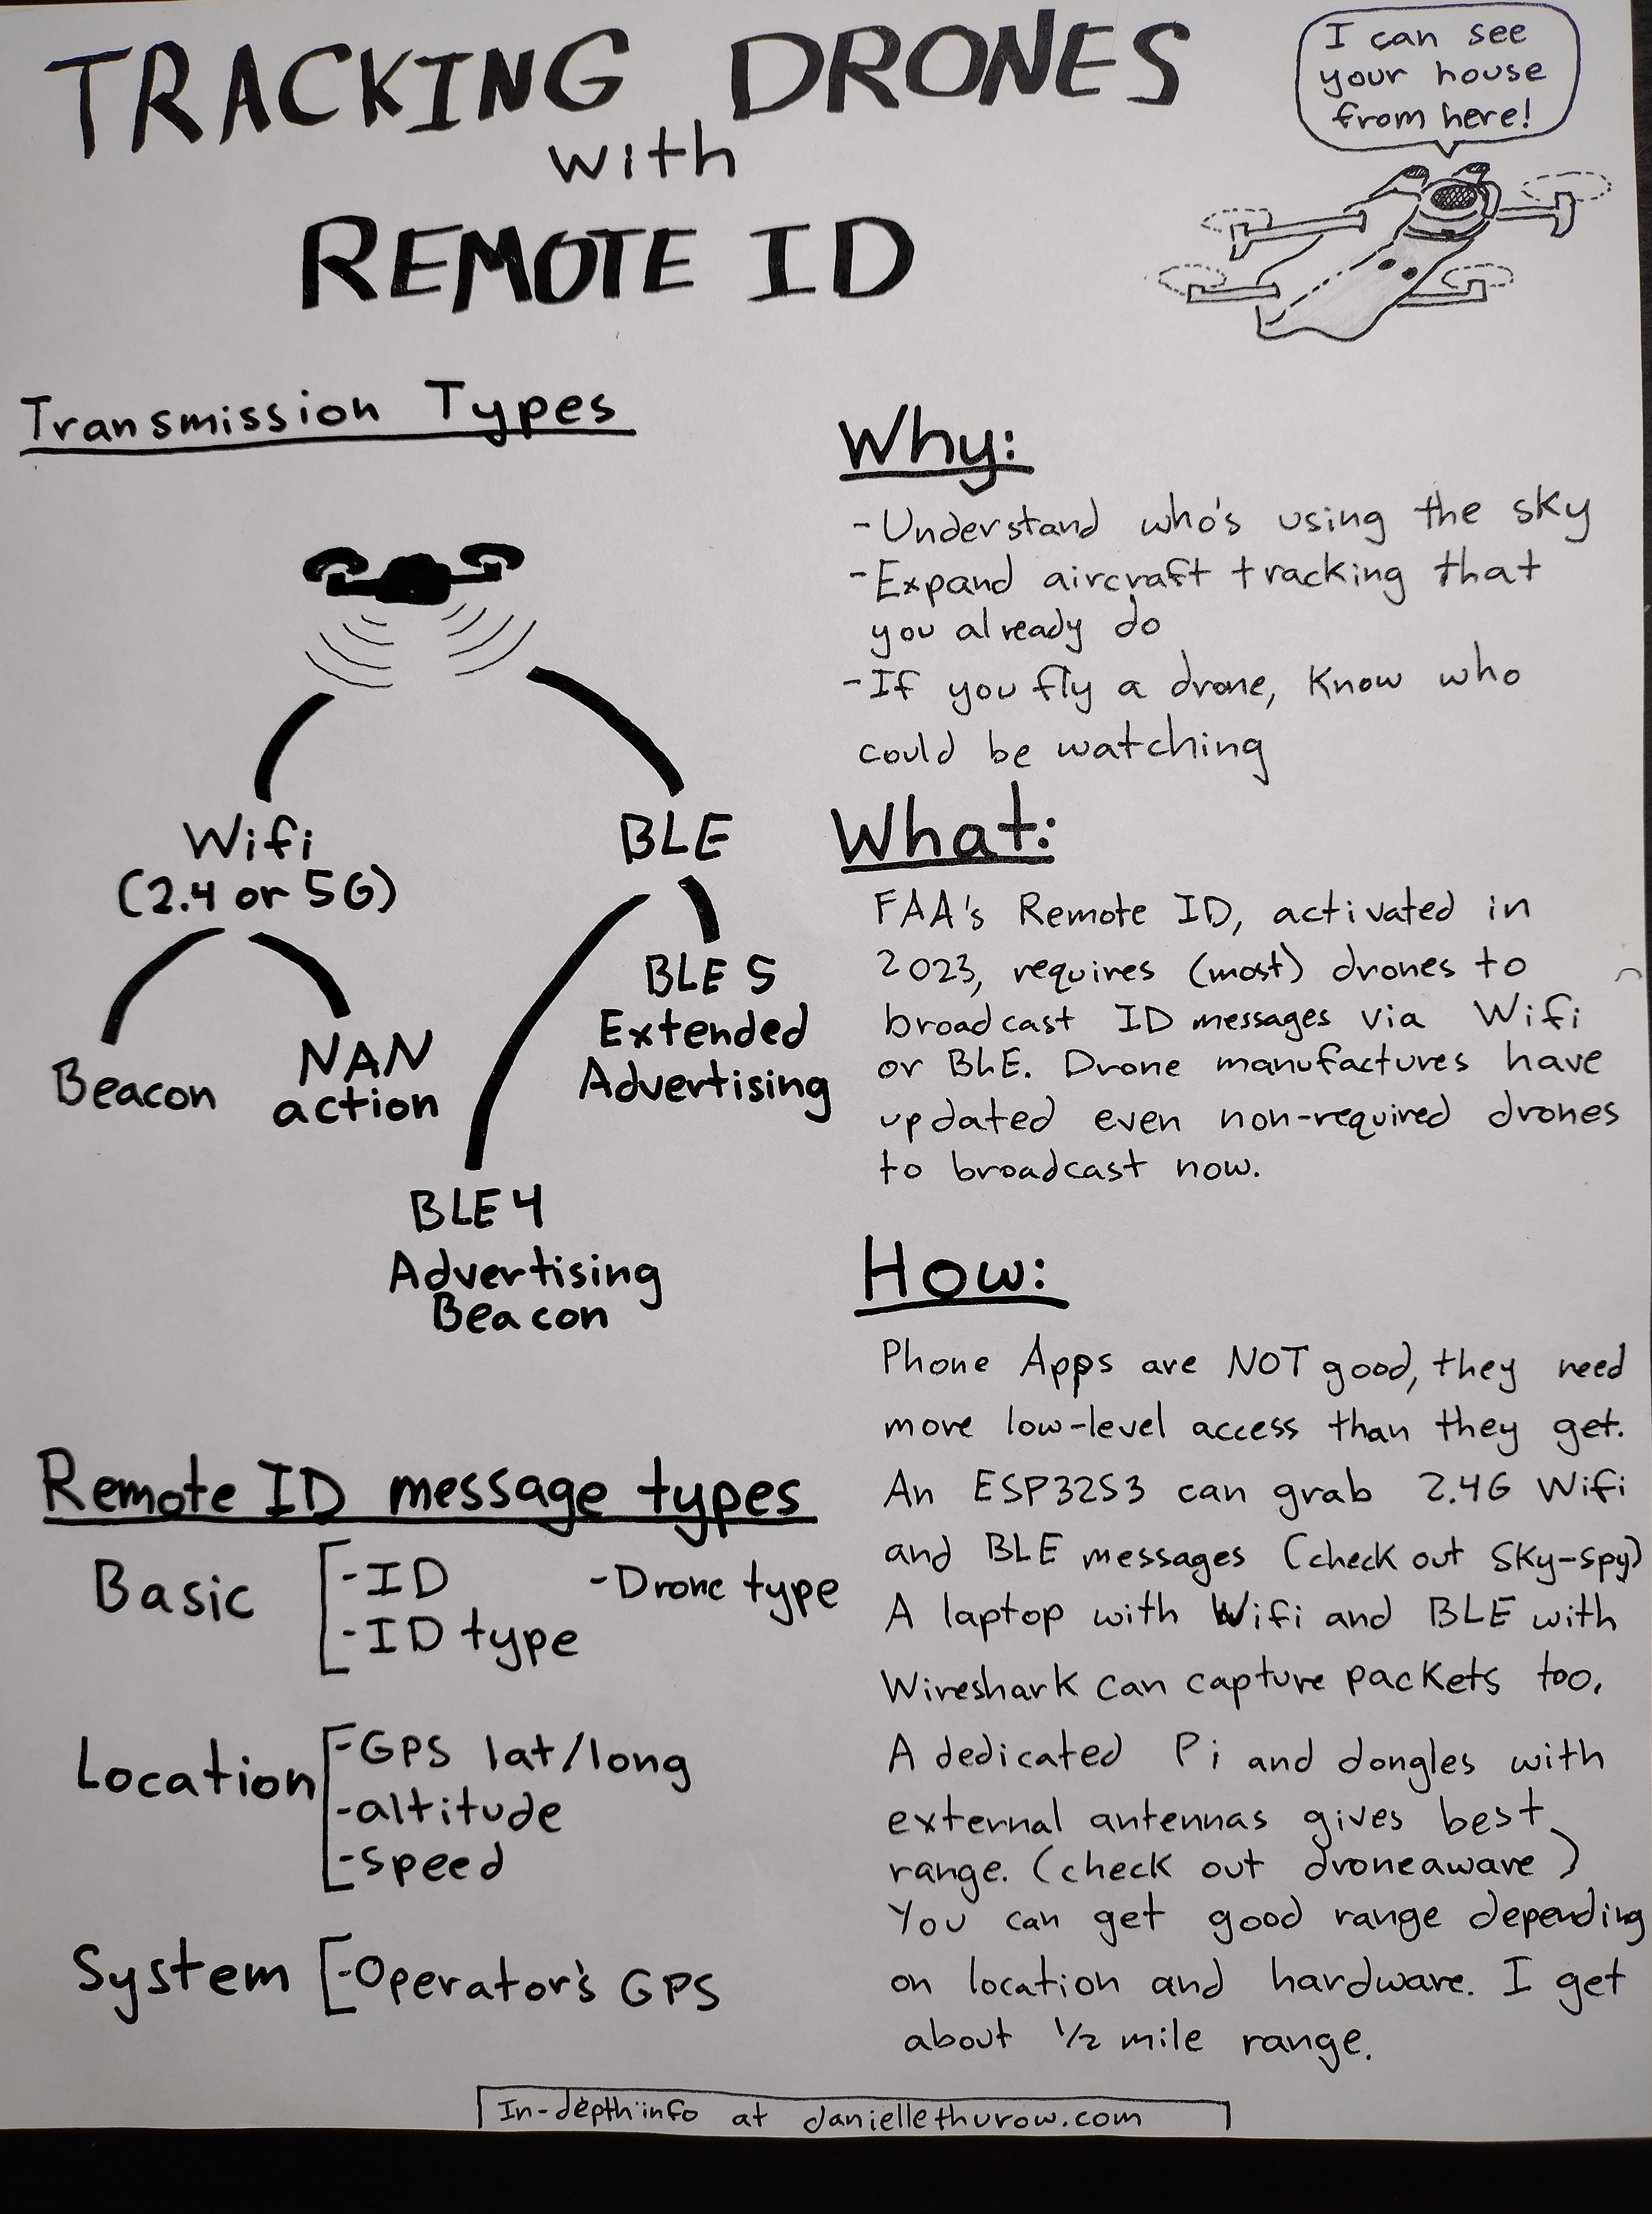 TRACKING DRONES
with
REMOTE ID
I can see
your house
from here!
Transmission Types
Wifi
(2.4 or 5G)
BLE
Beacon
NAN
action
BLE 5
Extended
Advertising
BLE 4
Advertising
Beacon
Remote ID message types
Basic
-ID
-Drone type
-ID type
Location
-GPS lat/long
-altitude
-speed
System
-Operator's GPS
Why:
-Understand who's using the sky
-Expand aircraft tracking that
you already do
-If you fly a drone, know who
could be watching
What:
FAA's Remote ID, activated in
2023, requires (most) drones to
broadcast ID messages via Wifi
or BLE. Drone manufactures have
updated even non-required drones
to broadcast now.
How:
Phone Apps are NOT good, they need
more low-level access than they get.
An ESP32S3 can grab 2.4G Wifi
and BLE messages (check out Sky-Spy)
A laptop with Wifi and BLE with
Wireshark can capture packets too,
A dedicated Pi and dongles with
external antennas gives best
range. (check out droneaware)
You can get good range depending
on location and hardware. I get
about 1/2 mile range.
In-depth info at daniellethurow.com